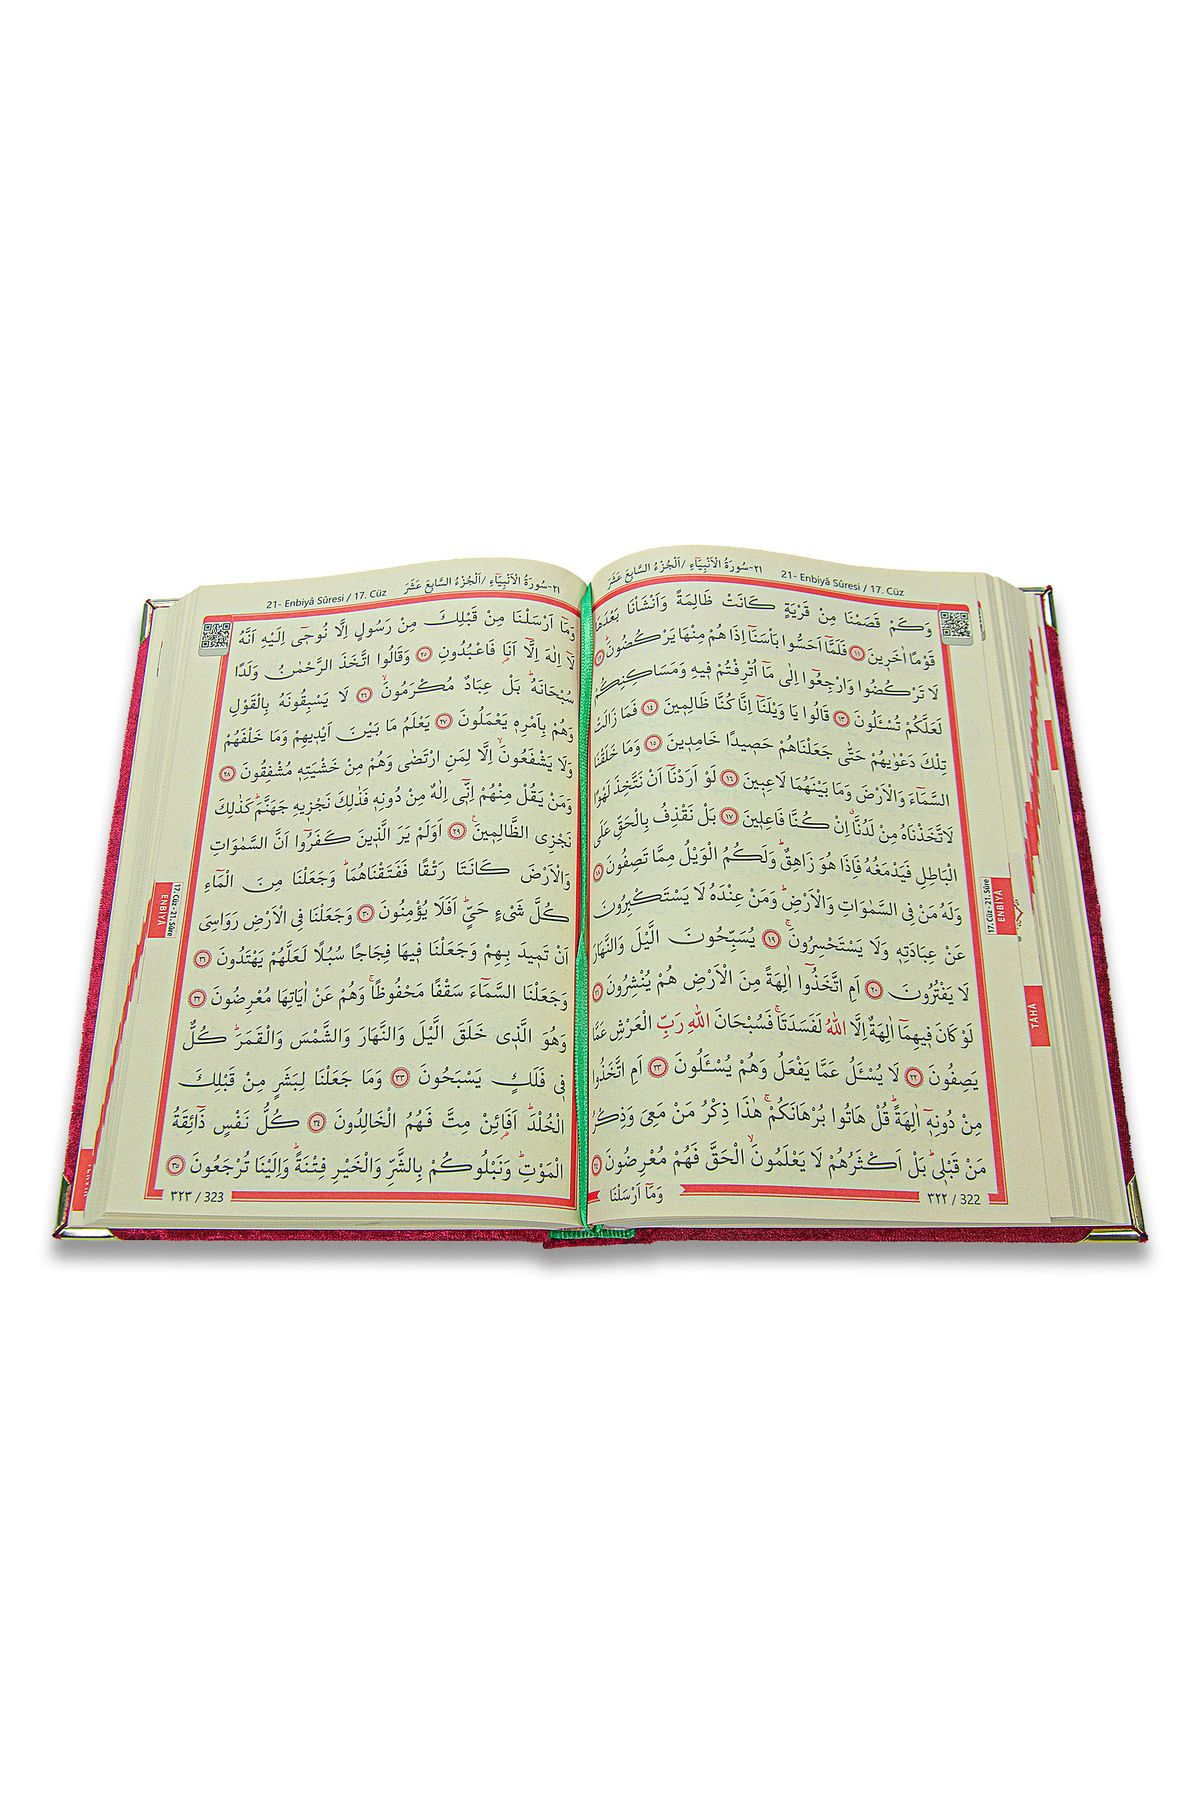 21- Enbiyâ Sûresi / 17. Cüz
٢١-سُورَةُ الْاَنْبِيَٓاءِ /اَلْجُزْءُ السَّابِعَ عَشَرَ
وَكَمْ قَصَمْنَا مِنْ قَرْيَةٍ كَانَتْ ظَالِمَةً وَاَنْشَاْنَا بَعْدَهَا
قَوْمًا اٰخَر۪ينَ ١١ فَلَمَّٓا اَحَسُّوا بَاْسَنَٓا اِذَا هُمْ مِنْهَا يَرْكُضُونَۜ ١٢
لَا تَرْكُضُوا وَارْجِعُٓوا اِلٰى مَٓا اُتْرِفْتُمْ ف۪يهِ وَمَسَاكِنِكُمْ
لَعَلَّكُمْ تُسْـَٔلُونَ ١٣ قَالُوا يَا وَيْلَنَٓا اِنَّا كُنَّا ظَالِم۪ينَ ١٤ فَمَا زَالَتْ
تِلْكَ دَعْوٰيهُمْ حَتّٰى جَعَلْنَاهُمْ حَص۪يدًا خَامِد۪ينَ ١٥ وَمَا خَلَقْنَا
السَّمَٓاءَ وَالْاَرْضَ وَمَا بَيْنَهُمَا لَاعِب۪ينَ ١٦ لَوْ اَرَدْنَٓا اَنْ نَتَّخِذَ لَهْوًا
لَاتَّخَذْنَاهُ مِنْ لَدُنَّاۗ اِنْ كُنَّا فَاعِل۪ينَ ١٧ بَلْ نَقْذِفُ بِالْحَقِّ عَلَى
الْبَاطِلِ فَيَدْمَغُهُ فَاِذَا هُوَ زَاهِقٌۜ وَلَكُمُ الْوَيْلُ مِمَّا تَصِفُونَ ١٨
وَلَهُ مَنْ فِي السَّمٰوَاتِ وَالْاَرْضِۜ وَمَنْ عِنْدَهُ لَا يَسْتَكْبِرُونَ
عَنْ عِبَادَتِه۪ وَلَا يَسْتَحْسِرُونَۚ ١٩ يُسَبِّحُونَ الَّيْلَ وَالنَّهَارَ
لَا يَفْتُرُونَ ٢٠ اَمِ اتَّخَذُٓوا اٰلِهَةً مِنَ الْاَرْضِ هُمْ يُنْشِرُونَ ٢١
لَوْ كَانَ ف۪يهِمَٓا اٰلِهَةٌ اِلَّا اللّٰهُ لَفَسَدَتَاۚ فَسُبْحَانَ اللّٰهِ رَبِّ الْعَرْشِ عَمَّا
يَصِفُونَ ٢٢ لَا يُسْـَٔلُ عَمَّا يَفْعَلُ وَهُمْ يُسْـَٔلُونَ ٢٣ اَمِ اتَّخَذُوا
مِنْ دُونِه۪ٓ اٰلِهَةًۜ قُلْ هَاتُوا بُرْهَانَكُمْۚ هٰذَا ذِكْرُ مَنْ مَعِيَ وَذِكْرُ
مَنْ قَبْل۪يۜ بَلْ اَكْثَرُهُمْ لَا يَعْلَمُونَۙ الْحَقَّ فَهُمْ مُعْرِضُونَ ٢٤
وَمَٓا اَرْسَلْنَا
٣٢٢ / 322
17. Cüz - 21. Sûre
ENBİYÂ
TÂHÂ
21- Enbiyâ Sûresi / 17. Cüz
٢١-سُورَةُ الْاَنْبِيَٓاءِ /اَلْجُزْءُ السَّابِعَ عَشَرَ
وَمَٓا اَرْسَلْنَا مِنْ قَبْلِكَ مِنْ رَسُولٍ اِلَّا نُوح۪ٓي اِلَيْهِ اَنَّهُ
لَٓا اِلٰهَ اِلَّٓا اَنَا۬ فَاعْبُدُونِ ٢٥ وَقَالُوا اتَّخَذَ الرَّحْمٰنُ وَلَدًا
سُبْحَانَهُۜ بَلْ عِبَادٌ مُكْرَمُونَۙ ٢٦ لَا يَسْبِقُونَهُ بِالْقَوْلِ
وَهُمْ بِاَمْرِه۪ يَعْمَلُونَ ٢٧ يَعْلَمُ مَا بَيْنَ اَيْد۪يهِمْ وَمَا خَلْفَهُمْ
وَلَا يَشْفَعُونَۙ اِلَّا لِمَنِ ارْتَضٰى وَهُمْ مِنْ خَشْيَتِه۪ مُشْفِقُونَ ٢٨
وَمَنْ يَقُلْ مِنْهُمْ اِنّ۪ٓي اِلٰهٌ مِنْ دُونِه۪ فَذٰلِكَ نَجْز۪يهِ جَهَنَّمَۜ كَذٰلِكَ
نَجْزِي الظَّالِم۪ينَ۟ ٢٩ اَوَلَمْ يَرَ الَّذ۪ينَ كَفَرُٓوا اَنَّ السَّمٰوَاتِ
وَالْاَرْضَ كَانَتَا رَتْقًا فَفَتَقْنَاهُمَاۜ وَجَعَلْنَا مِنَ الْمَٓاءِ
كُلَّ شَيْءٍ حَيٍّۜ اَفَلَا يُؤْمِنُونَ ٣٠ وَجَعَلْنَا فِي الْاَرْضِ رَوَاسِيَ
اَنْ تَم۪يدَ بِهِمْ وَجَعَلْنَا ف۪يهَا فِجَاجًا سُبُلًا لَعَلَّهُمْ يَهْتَدُونَ ٣١
وَجَعَلْنَا السَّمَٓاءَ سَقْفًا مَحْفُوظًاۚ وَهُمْ عَنْ اٰيَاتِهَا مُعْرِضُونَ ٣٢
وَهُوَ الَّذ۪ي خَلَقَ الَّيْلَ وَالنَّهَارَ وَالشَّمْسَ وَالْقَمَرَۜ كُلٌّ
ف۪ي فَلَكٍ يَسْبَحُونَ ٣٣ وَمَا جَعَلْنَا لِبَشَرٍ مِنْ قَبْلِكَ
الْخُلْدَۜ اَفَا۬ئِنْ مِتَّ فَهُمُ الْخَالِدُونَ ٣٤ كُلُّ نَفْسٍ ذَٓائِقَةُ
الْمَوْتِۜ وَنَبْلُوكُمْ بِالشَّرِّ وَالْخَيْرِ فِتْنَةًۜ وَاِلَيْنَا تُرْجَعُونَ ٣٥
٣٢٣ / 323
17. Cüz - 21. Sûre
ENBİYÂ